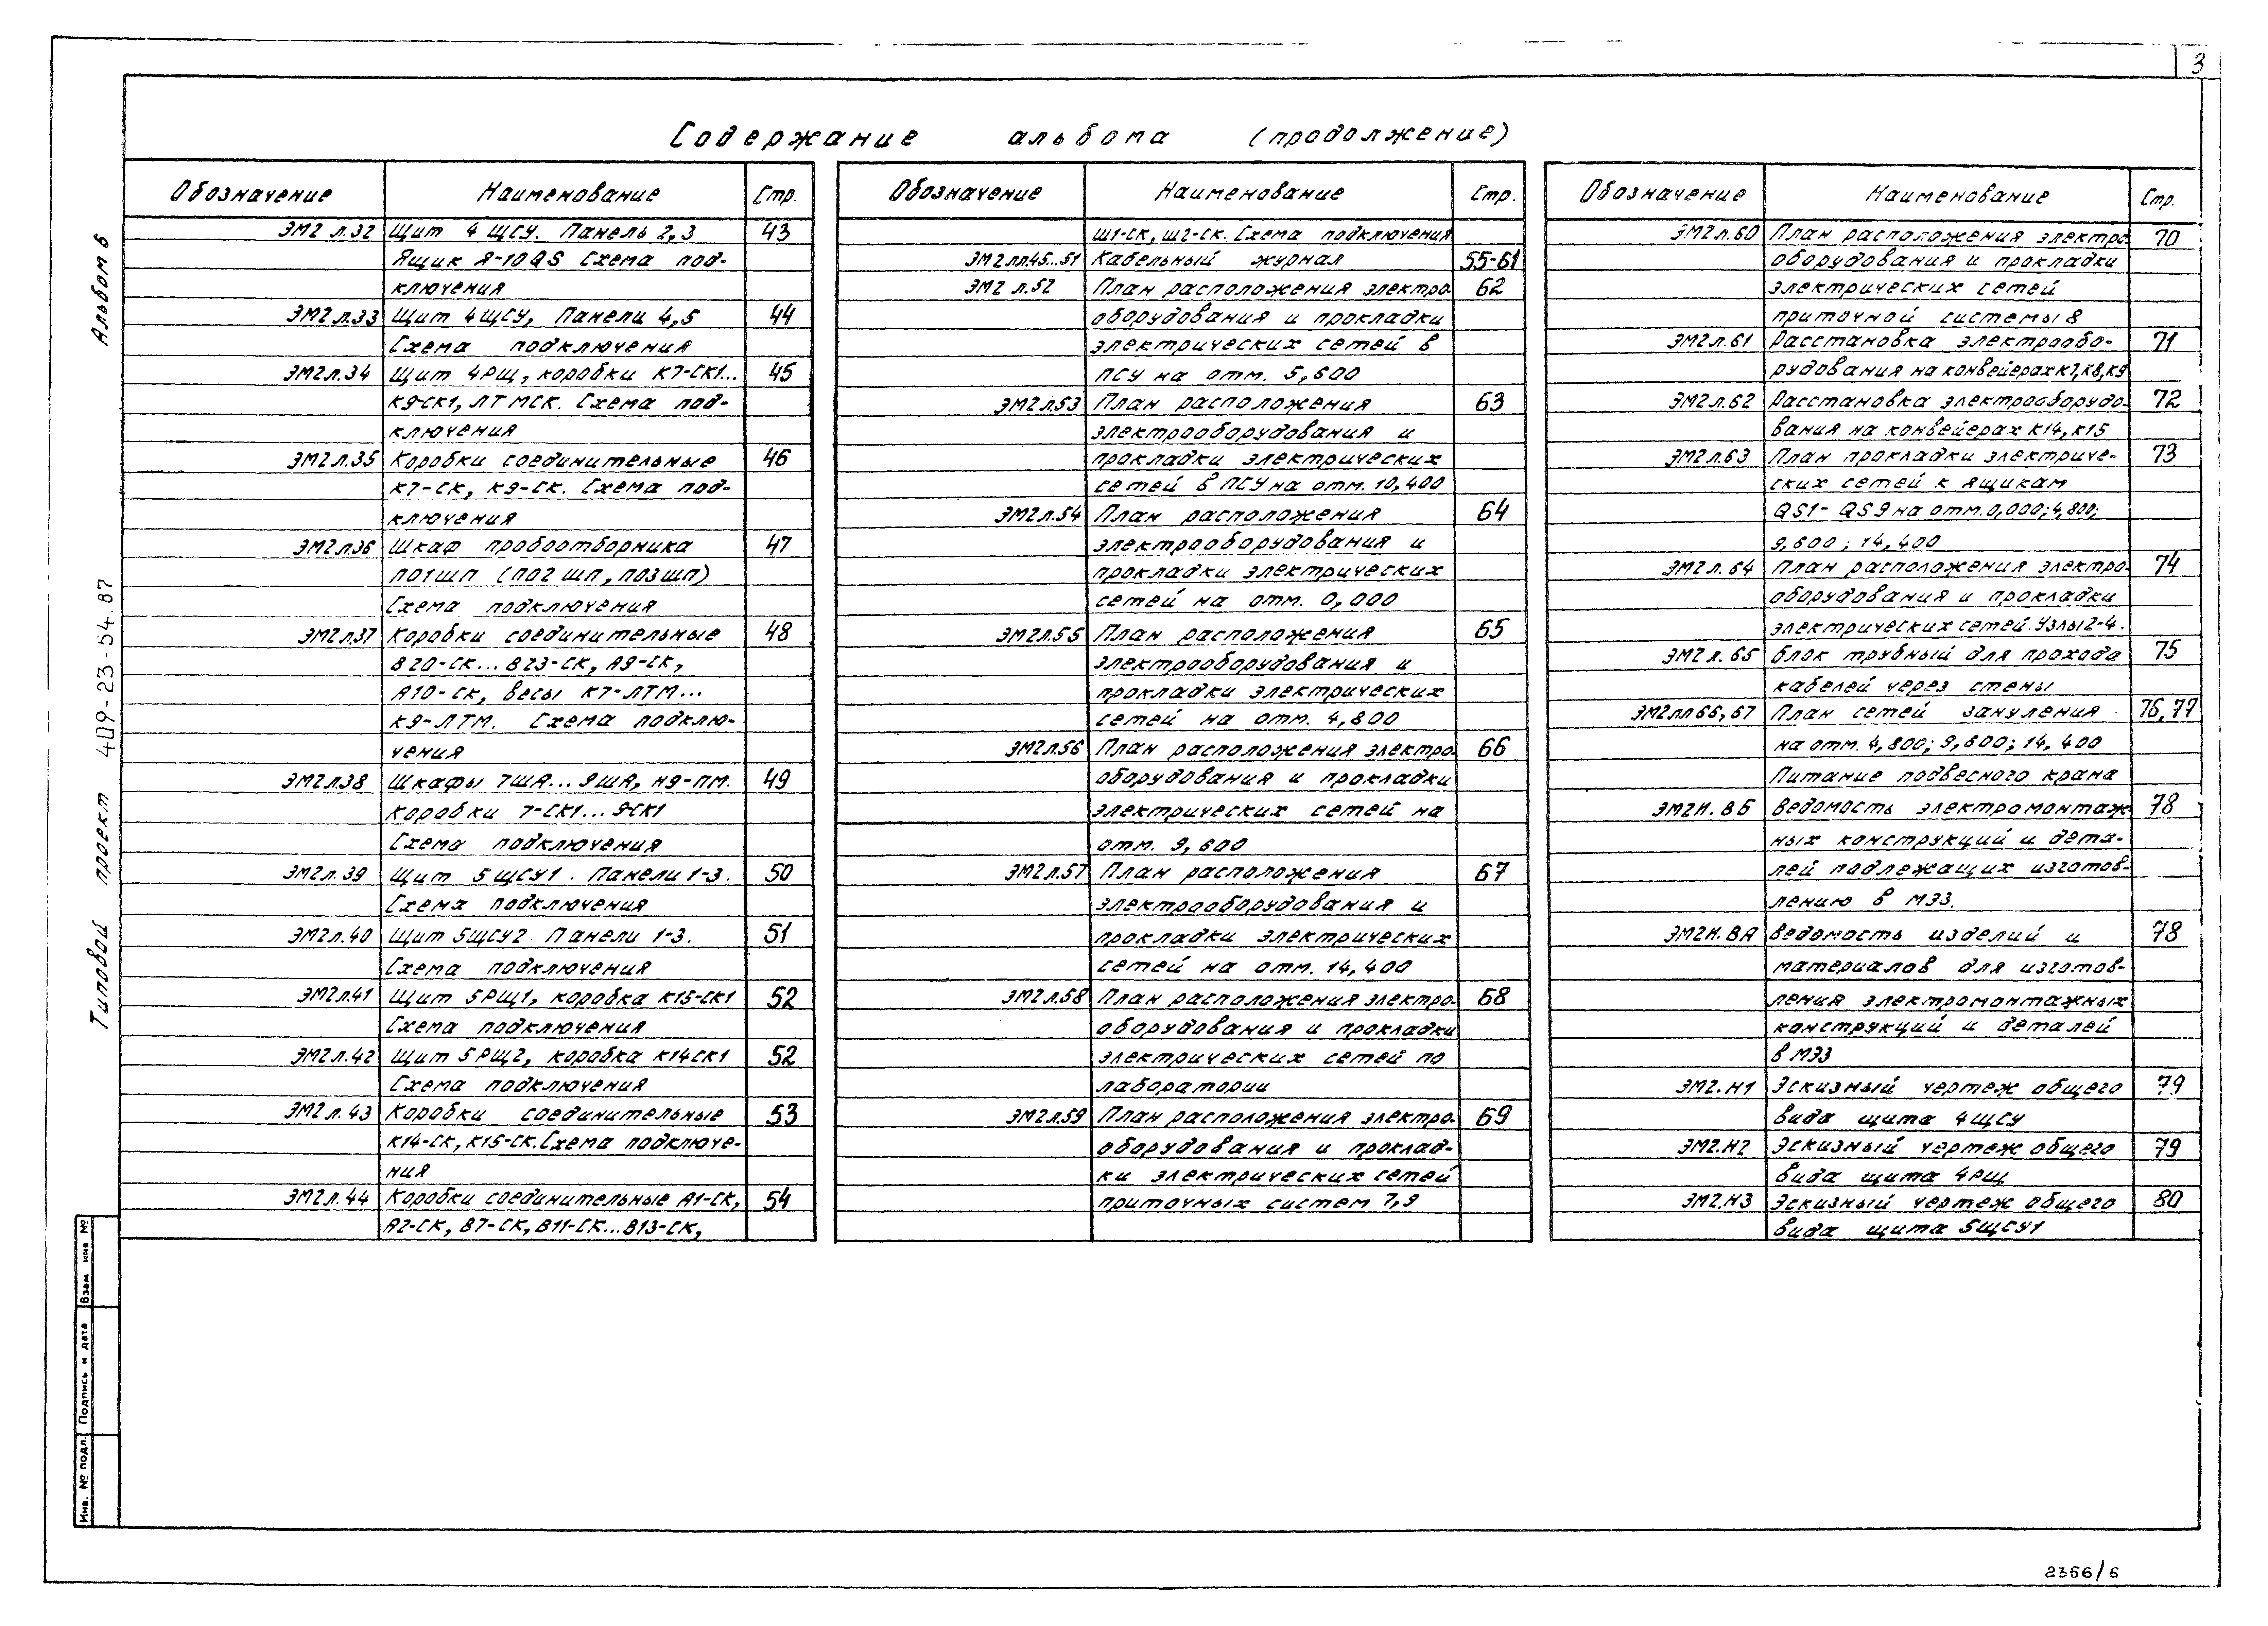 3
Содержание альбома (продолжение)
Обозначение Наименование Стр.
ЭМ2 л.32 Щит 4 ЩСУ. Панель 2,3 43
Ящик Я-10QS Схема под-
ключения
ЭМ2 л.33 Щит 4ЩСУ, Панели 4,5 44
Схема подключения
ЭМ2 л.34 Щит 4РЩ, коробки К7-СК1... 45
К9-СК1, ЛТМСК. Схема под-
ключения
ЭМ2 л.35 Коробки соединительные 46
К7-СК, К9-СК. Схема под-
ключения
ЭМ2 л.36 Шкаф пробоотборника 47
ПО1ШП (ПО2 ШП, ПО3ШП)
Схема подключения
ЭМ2 л.37 Коробки соединительные 48
В20-СК... В23-СК, А9-СК,
А10-СК, весы К7-ЛТМ...
К9-ЛТМ. Схема подклю-
чения
ЭМ2 л.38 Шкафы 7ША... 9ША, Н9-ПМ. 49
Коробки 7-СК1... 9-СК1
Схема подключения
ЭМ2 л.39 Щит 5 ЩСУ1. Панели 1-3. 50
Схема подключения
ЭМ2 л.40 Щит 5ЩСУ2. Панели 1-3. 51
Схема подключения
ЭМ2 л.41 Щит 5РЩ1, коробка К15-СК1 52
Схема подключения
ЭМ2 л.42 Щит 5РЩ2, коробка К14СК1 52
Схема подключения
ЭМ2 л.43 Коробки соединительные 53
К14-СК, К15-СК. Схема подключе-
ния
ЭМ2 л.44 Коробки соединительные А1-СК, 54
А2-СК, В7-СК, В11-СК...В13-СК,
Обозначение Наименование Стр.
Ш1-СК, Ш2-СК. Схема подключения
ЭМ2 лл.45...51 Кабельный журнал 55-61
ЭМ2 л.52 План расположения электро- 62
оборудования и прокладки
электрических сетей в
ПСУ на отм. 5,600
ЭМ2 л.53 План расположения 63
электрооборудования и
прокладки электрических
сетей в ПСУ на отм. 10,400
ЭМ2 л.54 План расположения 64
электрооборудования и
прокладки электрических
сетей на отм. 0,000
ЭМ2 л.55 План расположения 65
электрооборудования и
прокладки электрических
сетей на отм. 4,800
ЭМ2 л.56 План расположения электро 66
оборудования и прокладки
электрических сетей на
отм. 9,600
ЭМ2 л.57 План расположения 67
электрооборудования и
прокладки электрических
сетей на отм. 14,400
ЭМ2 л.58 План расположения электро- 68
оборудования и прокладки
электрических сетей по
лаборатории
ЭМ2 л.59 План расположения электро- 69
оборудования и проклад-
ки электрических сетей
приточных систем 7,9
Обозначение Наименование Стр.
ЭМ2 л.60 План расположения электро- 70
оборудования и прокладки
электрических сетей
приточной системы 8
ЭМ2 л.61 Расстановка электрообо- 71
рудования на конвейерах К7,К8,К9
ЭМ2 л.62 Расстановка электрооборудо- 72
вания на конвейерах К14, К15
ЭМ2 л.63 План прокладки электриче- 73
ских сетей к ящикам
QS1- QS9 на отм.0,000;4,800;
9,600; 14,400
ЭМ2 л.64 План расположения электро- 74
оборудования и прокладки
электрических сетей. Узлы 2-4.
ЭМ2 л.65 Блок трубный для прохода 75
кабелей через стены
ЭМ2 лл 66, 67 План сетей зануления 76, 77
на отм. 4,800; 9,600; 14,400
Питание подвесного крана
ЭМ2И. ВБ Ведомость электромонтаж- 78
ных конструкций и дета-
лей подлежащих изготов-
лению в МЭЗ.
ЭМ2И. ВА Ведомость изделий и 78
материалов для изготов-
ления электромонтажных
конструкций и деталей
в МЭЗ
ЭМ2.Н1 Эскизный чертеж общего 79
вида щита 4ЩСУ
ЭМ2.Н2 Эскизный чертеж общего 79
вида щита 4РЩ
ЭМ2.Н3 Эскизный чертеж общего 80
вида щита 5ЩСУ1
Альбом 6
Типовой проект 409-23-54.87
Взам инв №
Подпись и дата
Инв. № подл.
2356/6